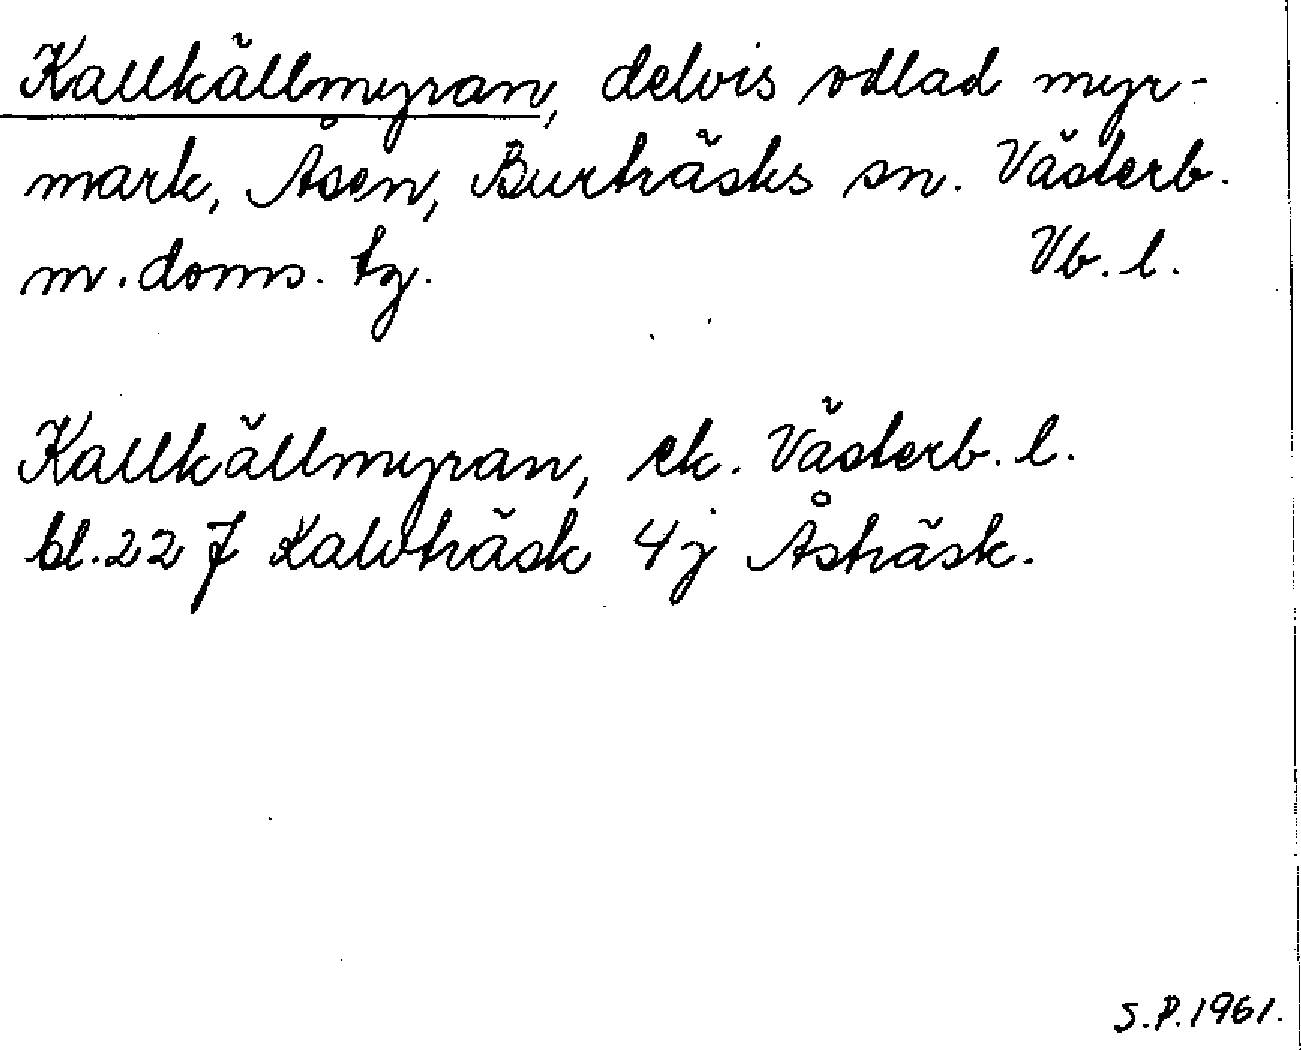 Kallkällmyran, delvis odlad myr-
mark, Åsen, Burträsks sn. Västerb.
m. doms. tg. Vb. l.
Kallkällmyran, ek. Västerb. l.
bl. 22 J Kalvträsk 4j Åsträsk.
S.P. 1961.